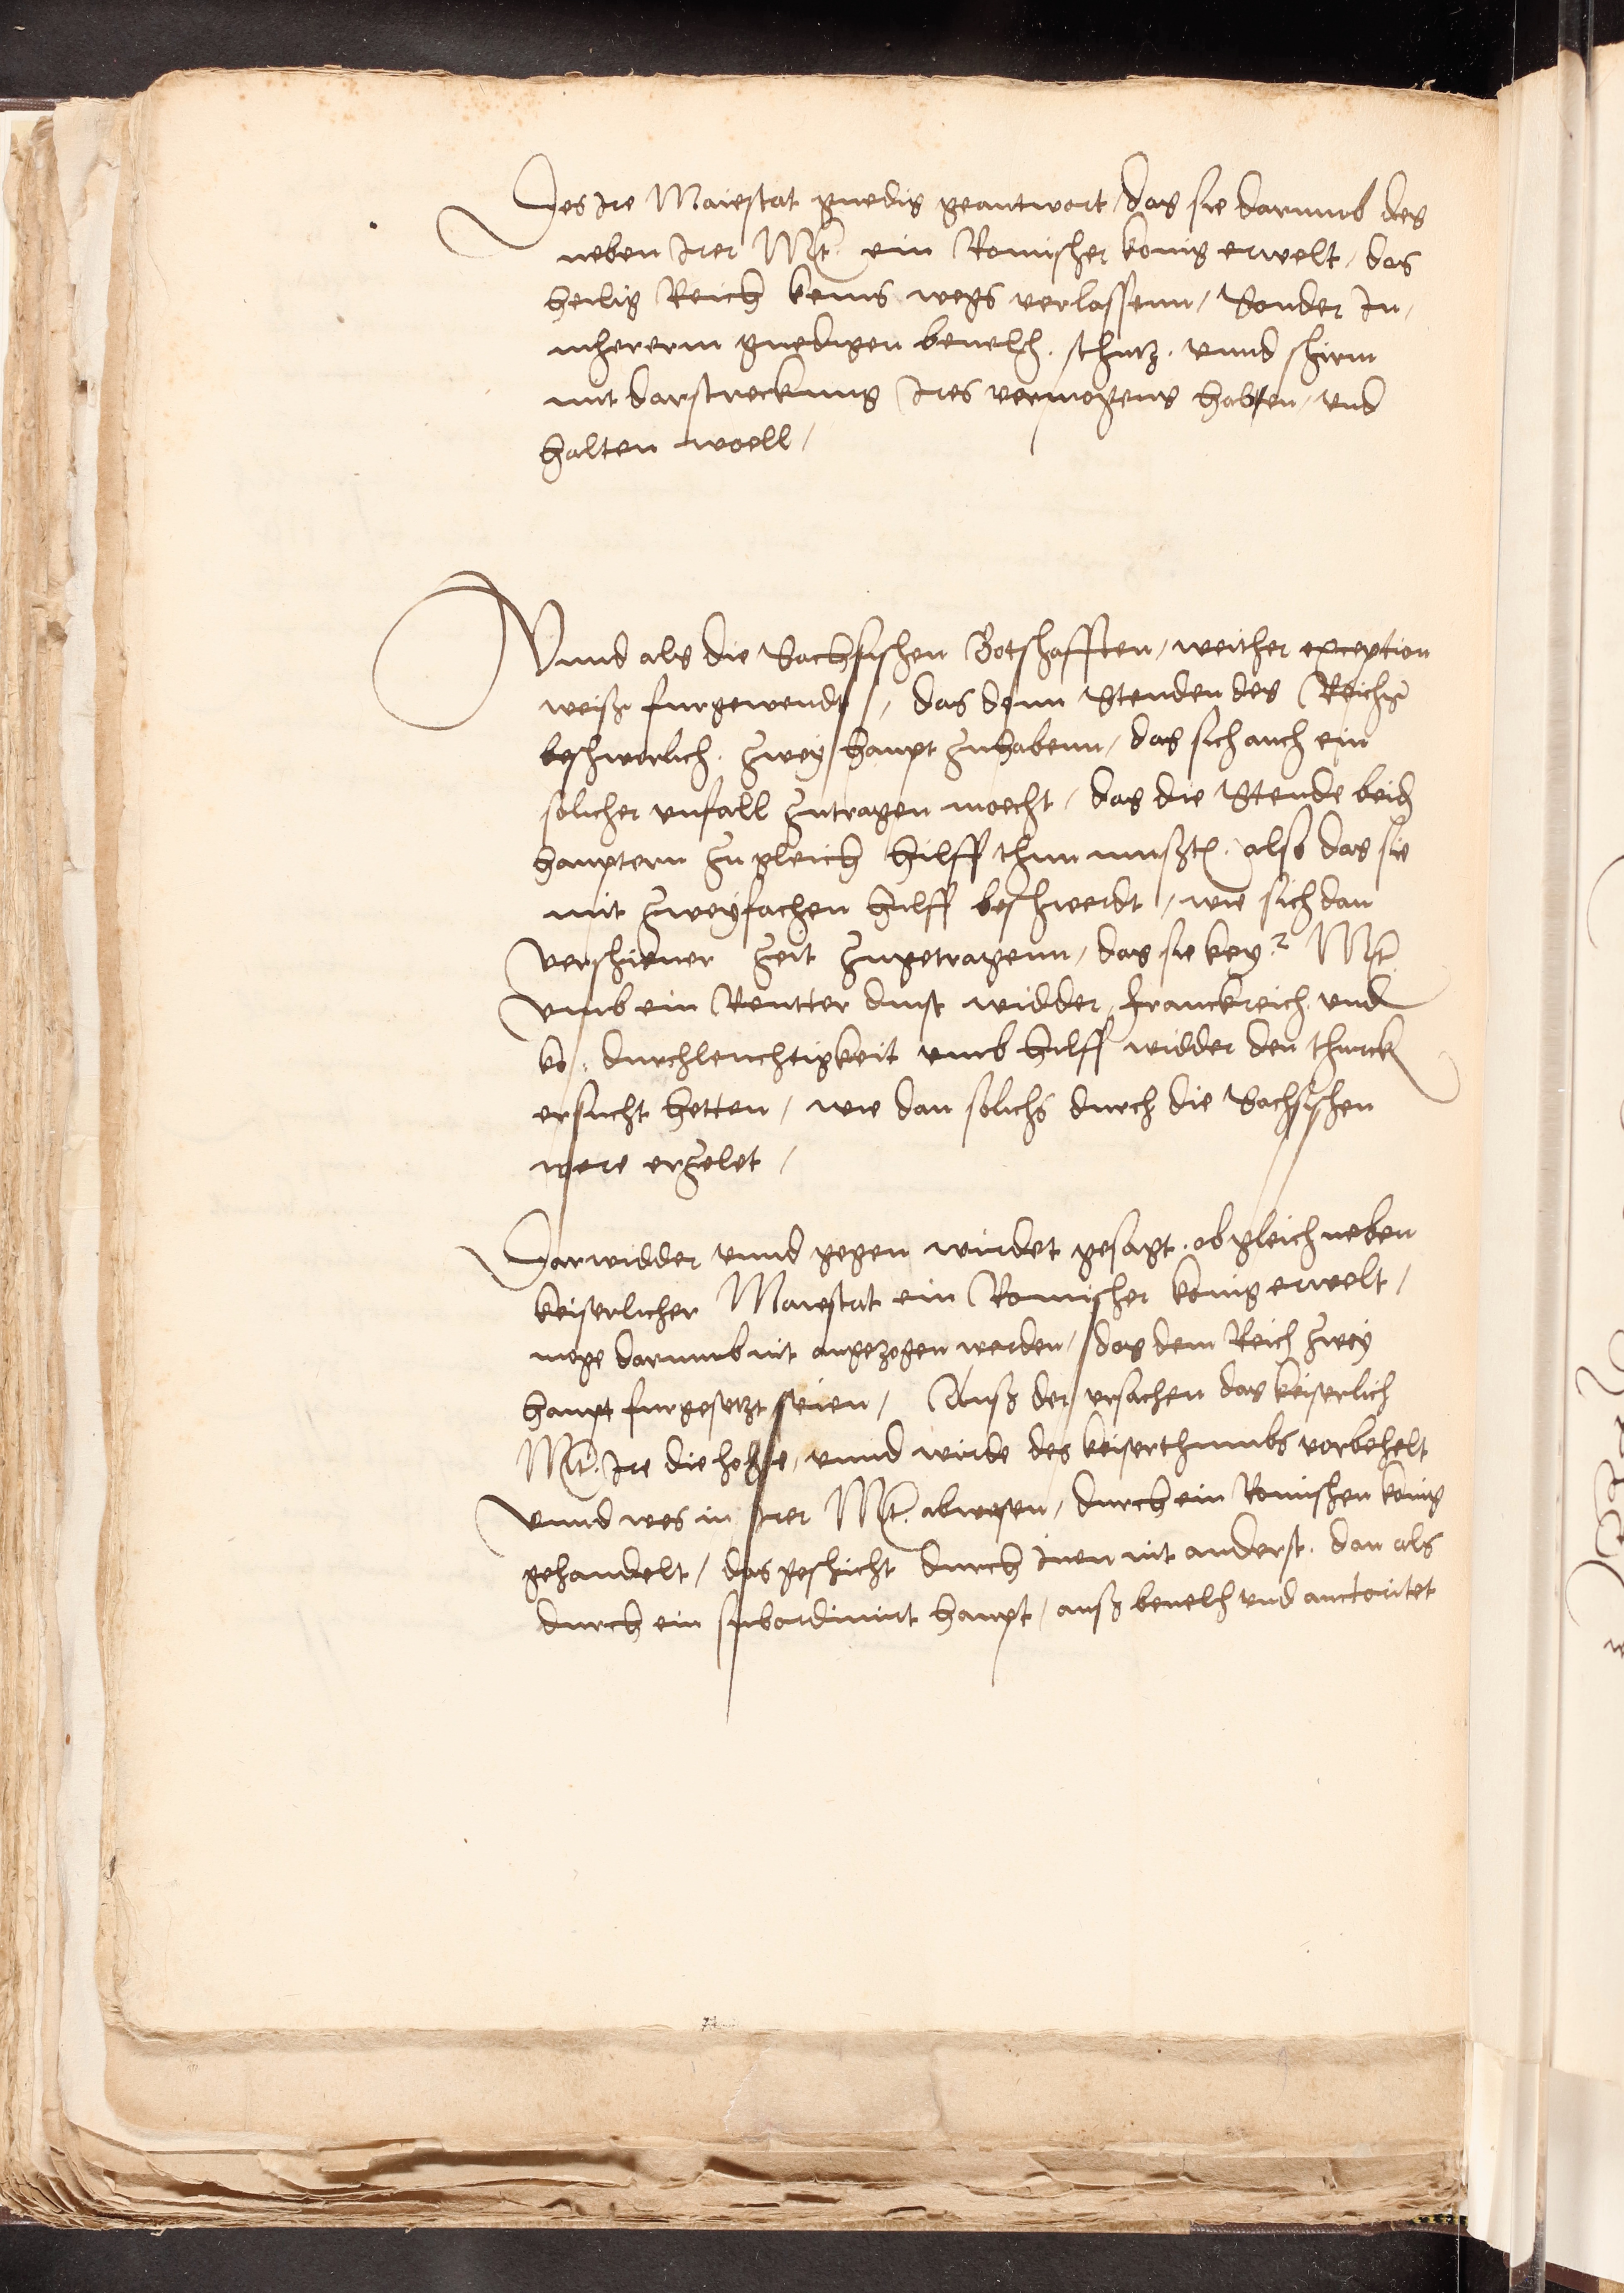 Des Ire Maiestat gnedig geantwort, das sie darumb das
neben Irer Mt. ein Romischer konig erwelt, das
heilig Reich keins wegs verlassenn, Sonder In,
mhererm gnedigen beuelch, schutz, vnnd schirm
mit darstreckung Ires vermogens haben, vnd
halten woell,
Vnnd als die Sachsischen Botschafften, weither exception
weiß furgewendt, das denn Stenden des Reichs
beschwerlich, zwey haupt zuhabenn, das sich auch ein
solicher vnfall zutragen moecht, das die Stende beid
hauptern zu gleich hilff thun mußten, also das sie
mit zweyfachen hilff beschwerdt, wie sich dan
verschiener zeit zugetragenn, das sie key.r Mt.
vmb ein Reutter dinst widder Franckreich vnd
ko. durchleuchtigkeit vmb hilff widder den thurck
ersucht hetten, wie dan solichs durch die Sachsischen
were erzelet,
Darwidder vnnd gegen wirdet gesagt, ob gleich neben
keiserlicher Maiestat ein Romischer konig erwelt,
moge darumb nit angezogen werden, das dem Reich zwey
haupt furgesetzt seien, Auß der vrsachen das keiserlich
Mt. Ire die hohe, vnnd wirde des keiserthumbs vorbehelt
vnnd wes in Irer Mt. abwesen, durch ein Romischen konig
gehandelt, das geschicht durch Inen nit anderst, dan als
durch ein subordinirt haupt, auß beuelch vnd auctoritet